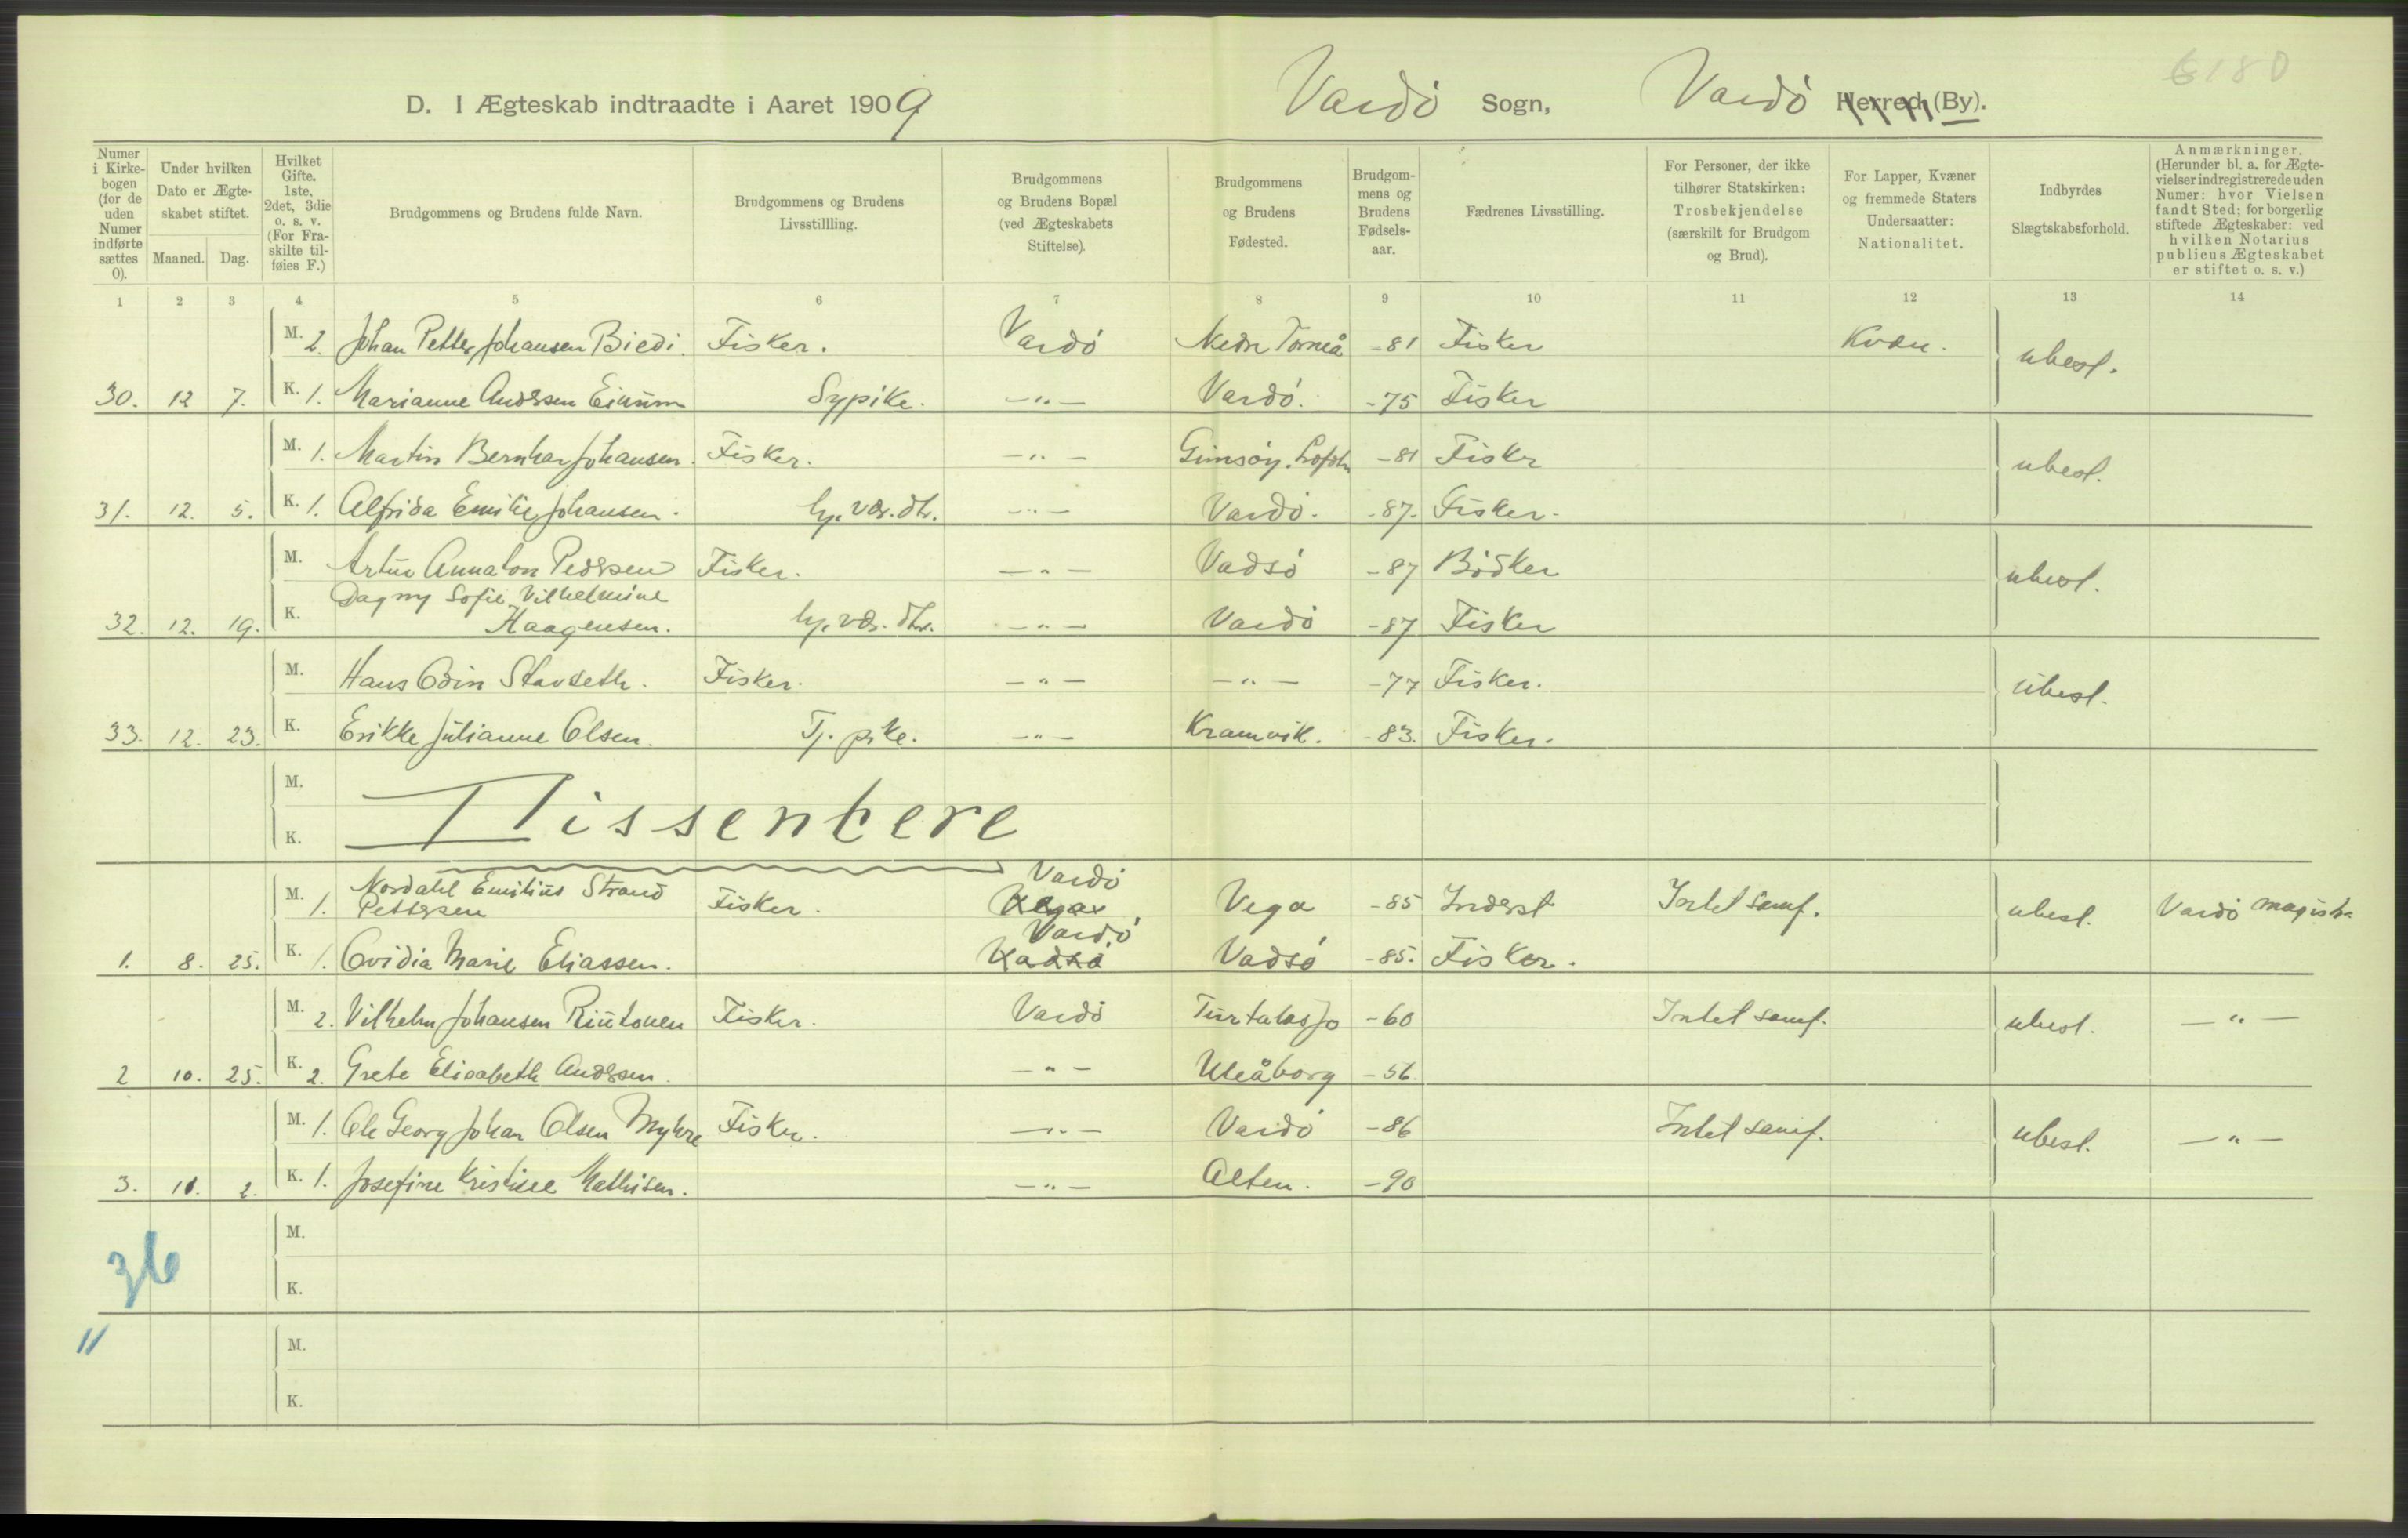 6180
D. I Ægteskab indtraadte i Aaret 1909 Vardö Sogn, Vardö Herred (By).
Numer i Kirkebogen (for de uden Numer indførte sættes 0).
Under hvilken Dato er Ægteskabet stiftet.
Maaned. Dag.
Hvilket Gifte. 1ste, 2det, 3die o. s. v. (For Fraskilte tilføies F.)
Brudgommens og Brudens fulde Navn.
Brudgommens og Brudens Livsstillling.
Brudgommens og Brudens Bopæl (ved Ægteskabets Stiftelse).
Brudgommens og Brudens Fødested.
Brudgommens og Brudens Fødselsaar.
Fædrenes Livsstilling.
For Personer, der ikke tilhører Statskirken: Trosbekjendelse (særskilt for Brudgom og Brud).
For Lapper, Kvæner og fremmede Staters Undersaatter: Nationalitet.
Indbyrdes Slægtskabsforhold.
Anmærkninger. (Herunder bl. a. for Ægtevielser indregistrerede uden Numer: hvor Vielsen fandt Sted; for borgerlig stiftede Ægteskaber: ved hvilken Notarius publicus Ægteskabet er stiftet o. s. v.)
1 2 3 4 5 6 7 8 9 10 11 12 13 14
M. 2. Johan Petter Johansen Biedi. Fisker. Vardö Nedre Torneå -81 Fisker Kvæn. ubesl.
30. 12 7. K. 1. Marianne Andersen Sypike. -"- Vardö. -75 Fisker
M. 1. Martin Bernhar Johansen. Fisker. -"- Gimsöy. Lofoten -81 Fisker ubesl.
31. 12. 5. K. 1. Alfrida Emilie Johansen. hj. vær. dtr. -"- Vardö. -87. Fisker.
M. Artur Annaton Pedersen Fisker. -"- Vadsö -87 Bödker ubesl.
Dagny Sofie Vilhelmine
32. 12. 19. K. Haagensen. hj. vær. dtr. -"- Vardö -87 Fisker
M. Hans Odin Stavseth. Fisker. -"- -"- -77 Fisker. ubesl.
33. 12. 23. K. Erikke Julianne Olsen. Tj. pike. -"- Kramvik. -83. Fisker.
M.
K. Dissentere
Nordahl Emilius Strand Vardö
M. 1. Pettersen Fisker. Vega Vega -85 Inderst Intet samf. ubesl. Vardö magistr
Vardö
1. 8. 25. K. 1. Ovidia Marie Eliassen. Vadsö Vadsö -85. Fisker.
M. 2. Vilhelm Johansen Fisker. Vardö -60 Intet samf. ubesl. -"-
2 10. 25. K. 2. Grete Elisabeth Andersen. -"- Uleåborg -56.
M. 1. Ole Georg Johan Olsen Myhre Fisker. -"- Vardö -86 Intet samf. ubesl. -"-
3. 11. 2. K. 1. Josefine Kristine Mathisen. -"- Alten. -90
M.
36
K.
"
M.
K.